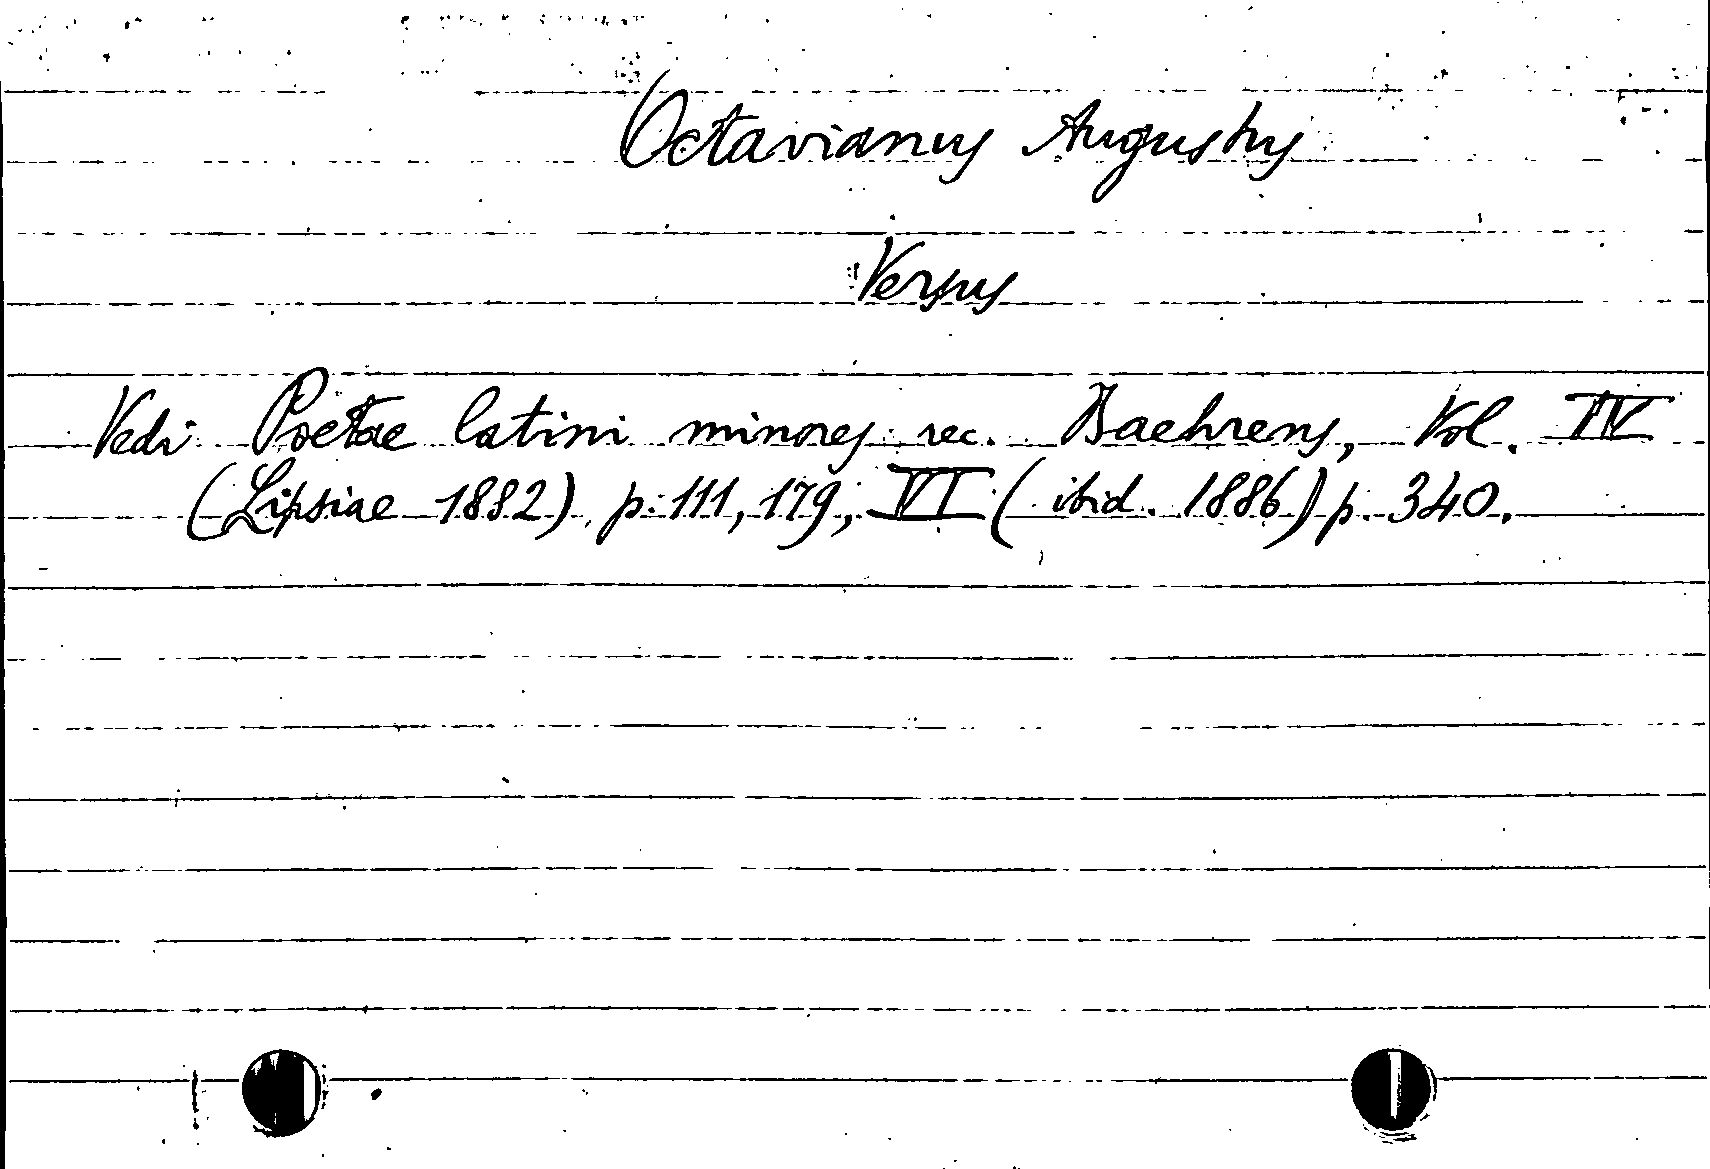 Octavianus Augustus
Versus
Vedi Poetae latini minores rec. Baehrens, Vol. IV
(Lipsiae 1882) p. 111, 179; VI (ibid. 1886) p. 340.